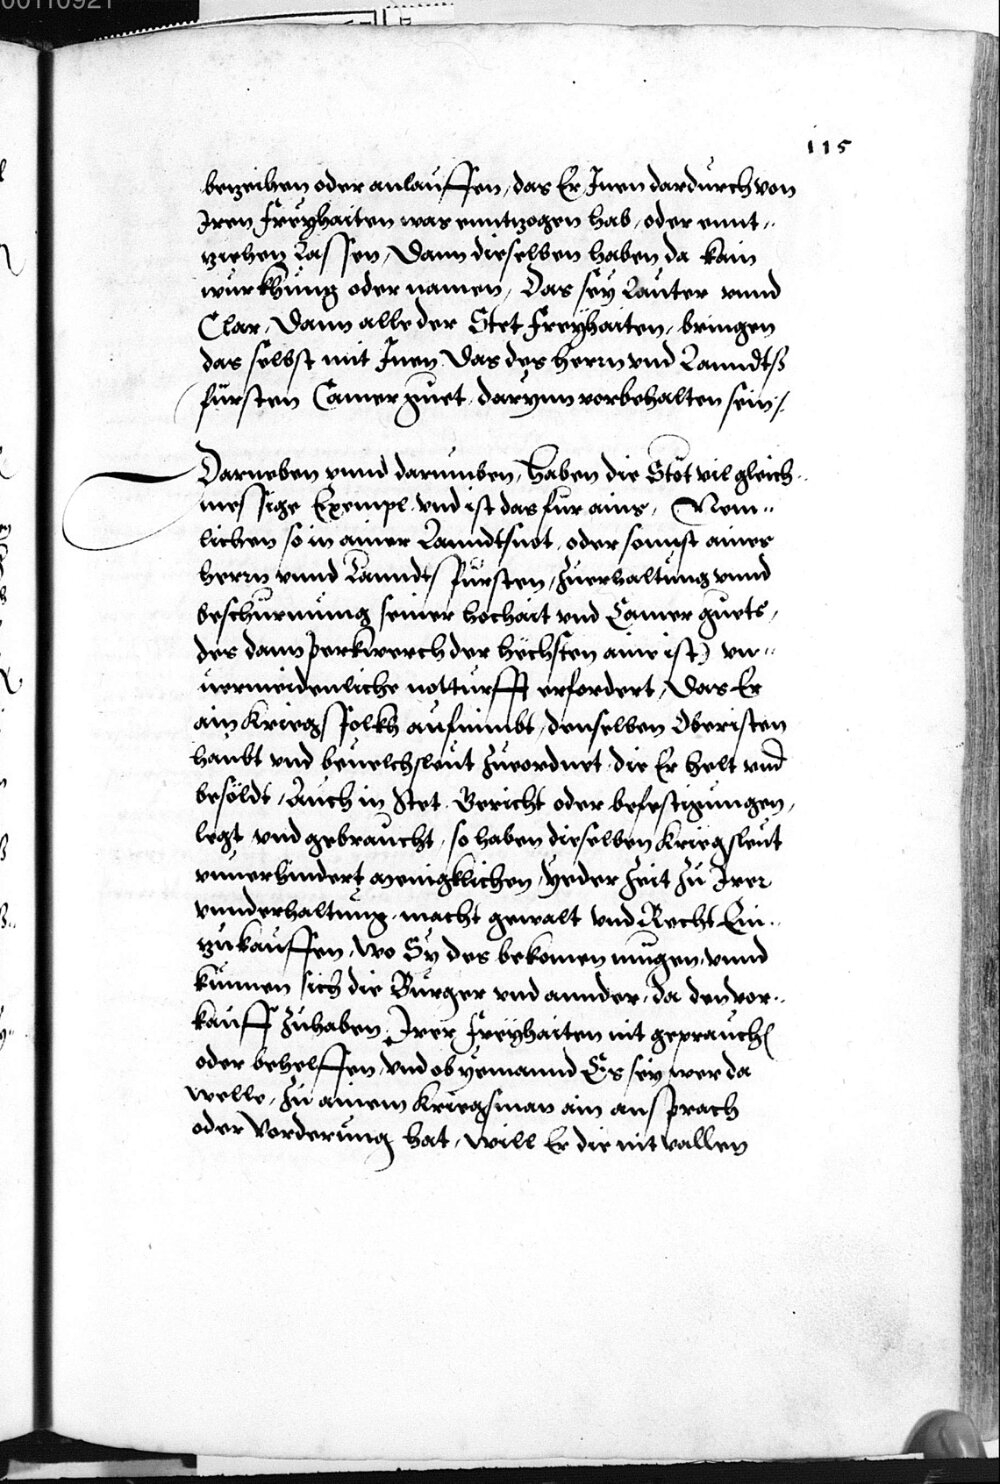 00110921
115
bezeihen oder anlauffen, das Er Inen dardurch von
Iren freyhaiten was enntzogen hab, oder ennt=
ziehen Lassen, Dann dieselben haben da kain
würkhung oder namen, Das sey Lauter vnnd
Clar, Dann alle der Stet freyhaiten, bringen
das selbst mit Inen, Das des herrn vnd Lanndtß
fürsten Camer guet, darynn vorbehalten sein /.
Darneben vnnd darumben, haben die Stöt vil gleich=
messige Exempl, vnd ist das fur ains, Nem=
lichen so in ainer Lanndtsnot, oder sonnst aines
herrn vnnd Lanndtsfürsten, Zuerhaltung vnnd
beschürmung seiner hochait vnd Camer guets,
des dann perkhwerch der höchsten aine ist) vn=
uermeidenliche notturfft erfordert, Das Er
ain Kriegsfolkh aufnimbt, denselben Obristen
haubt vnd beuelchsleut Zueordnet, die Er helt vnd
besöldt, Auch in Stet, Gericht oder befestigungen,
legt vnd gebraucht, so haben dieselben Kriegsleut
vnuerhindert menigklichen, yeder Zeit Zu Irer
vnnderhaltung, macht gewalt vnd Recht Ein=
zukauffen, wo Sy des bekomen mugen, vnnd
künnen sich die Burger vnd annder, da den vor=
kauff Zuhaben, Irer freyhaiten nit geprauchen
oder behelffen, vnd ob yemannd Es sey wer da
welle, Zu ainem Kriegsman ain ansprach
oder Vorderung hat, will Er die nit vallen